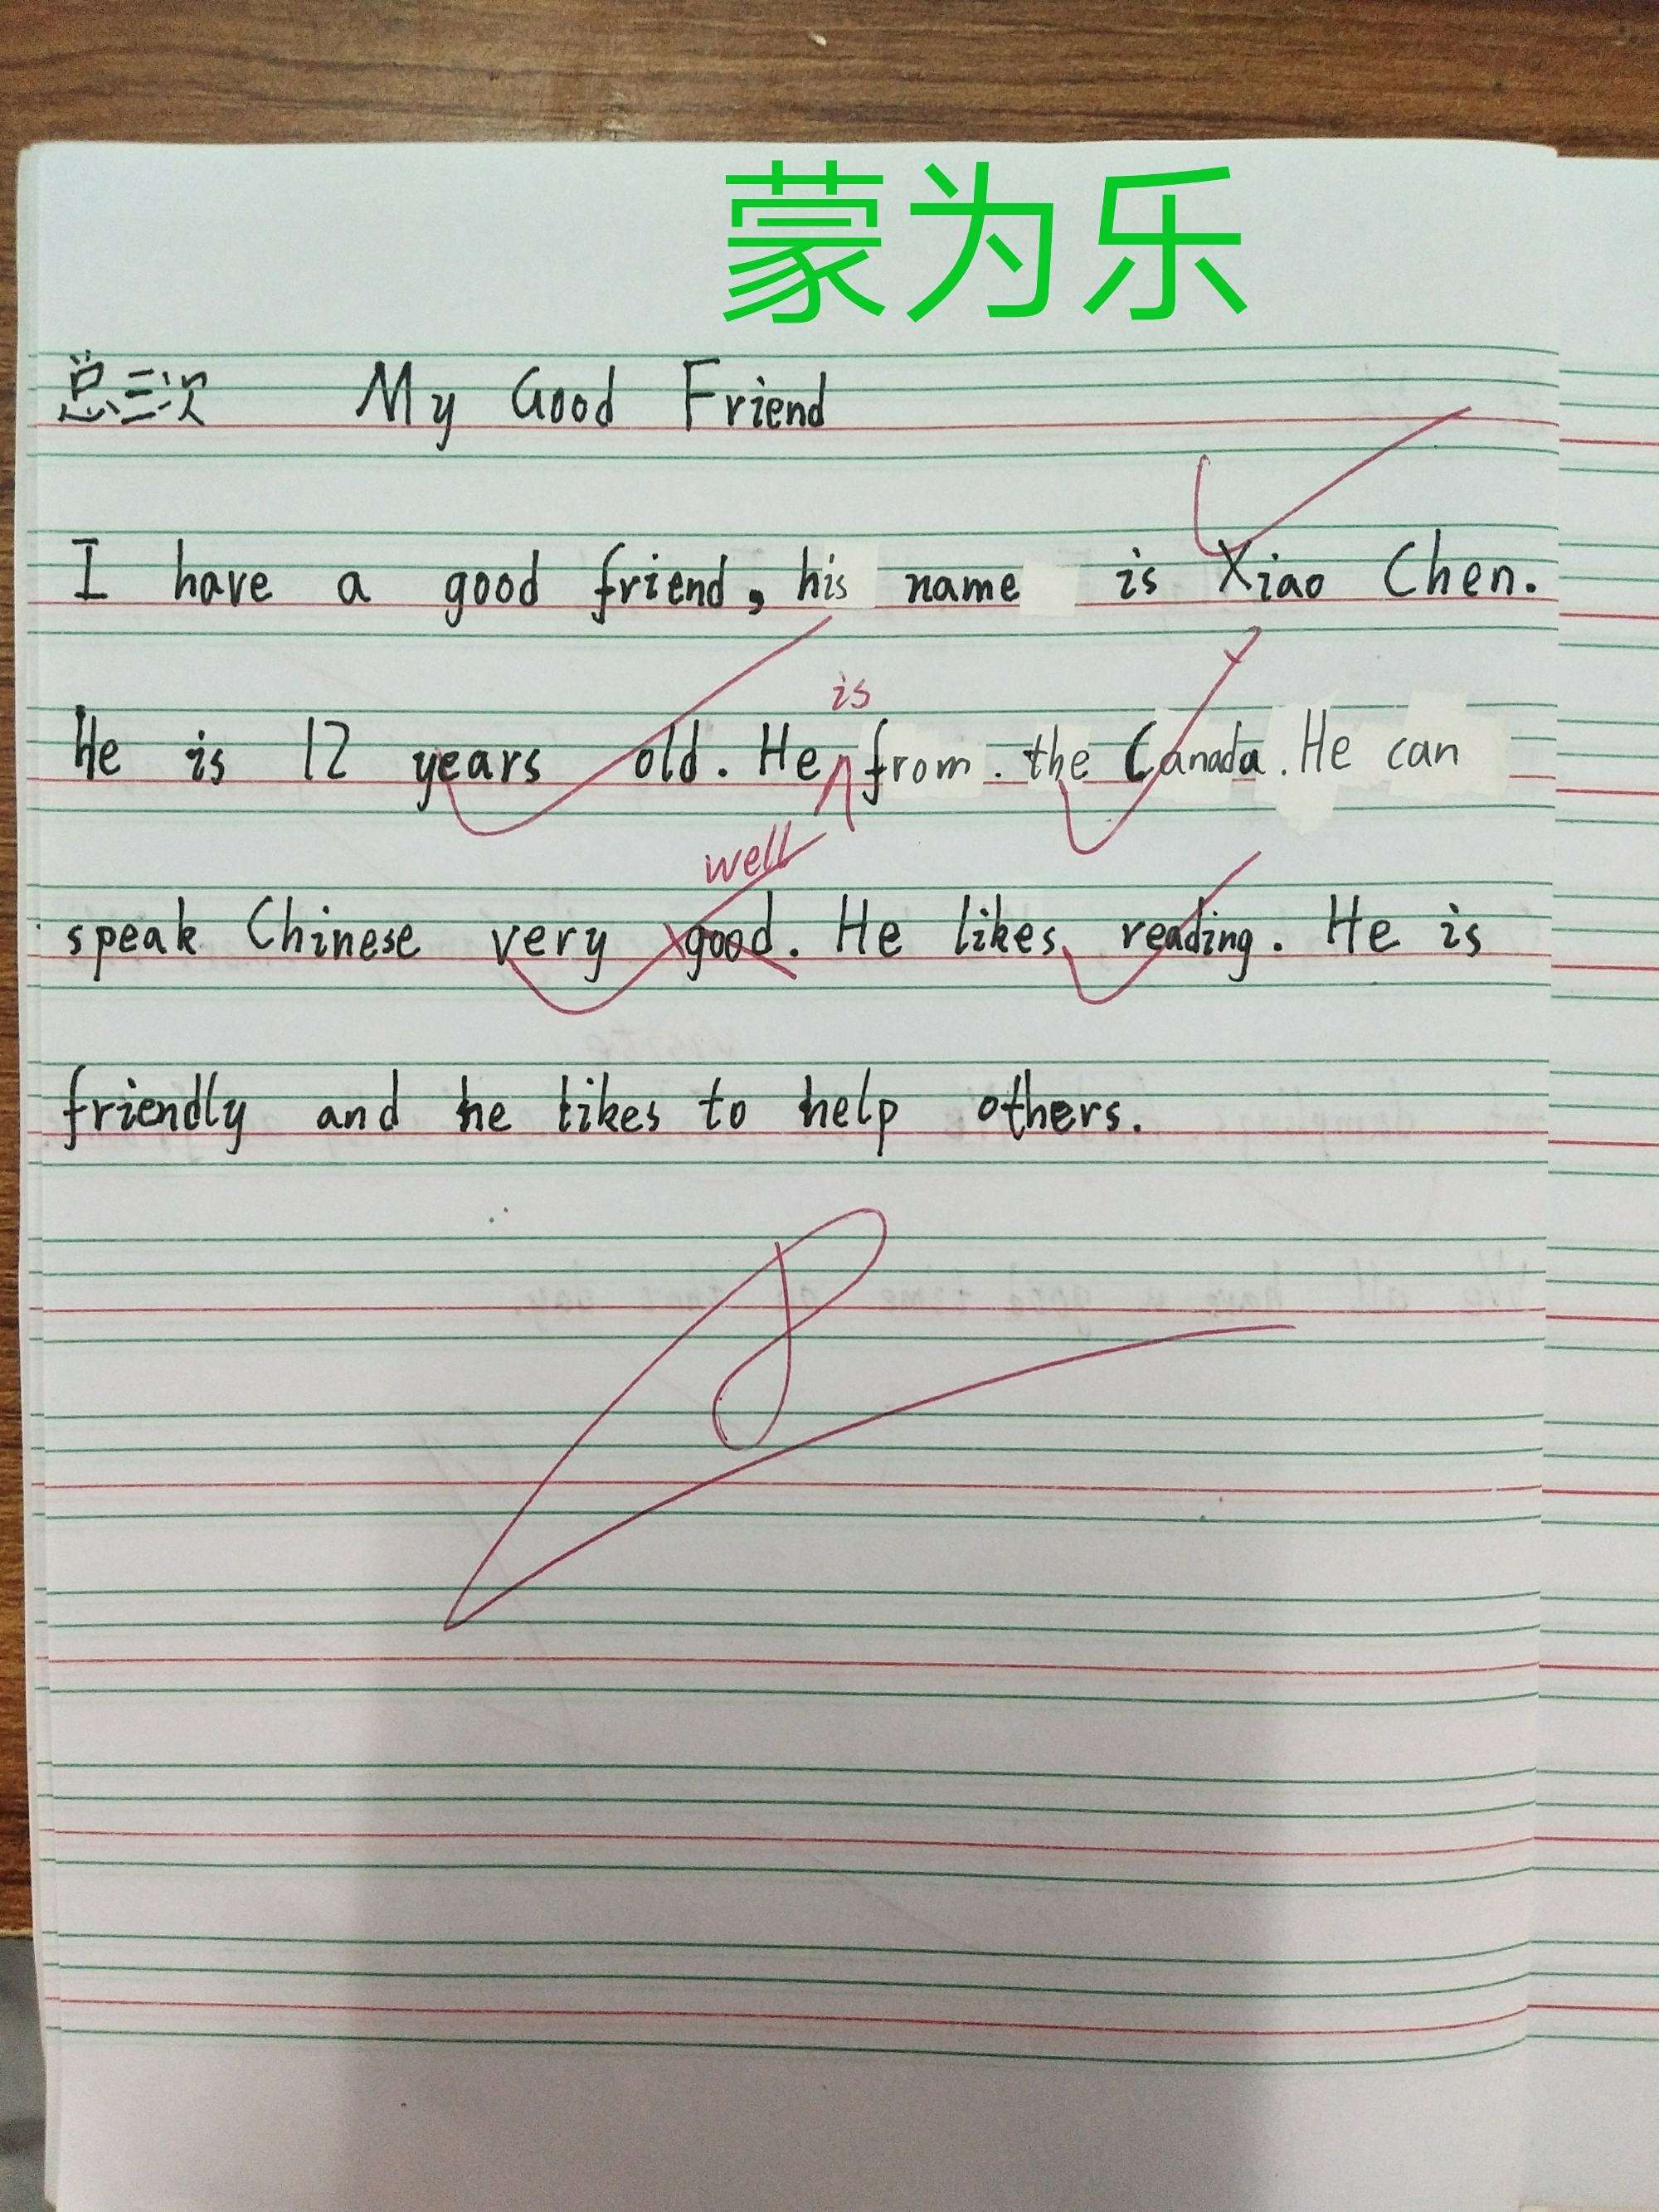 蒙为乐
总三次 My Good Friend
I have a good friend, his name is Xiao Chen.
is
He is 12 years old. He from. the Canada. He can
well
speak Chinese very good. He likes reading. He is
friendly and he likes to help others.